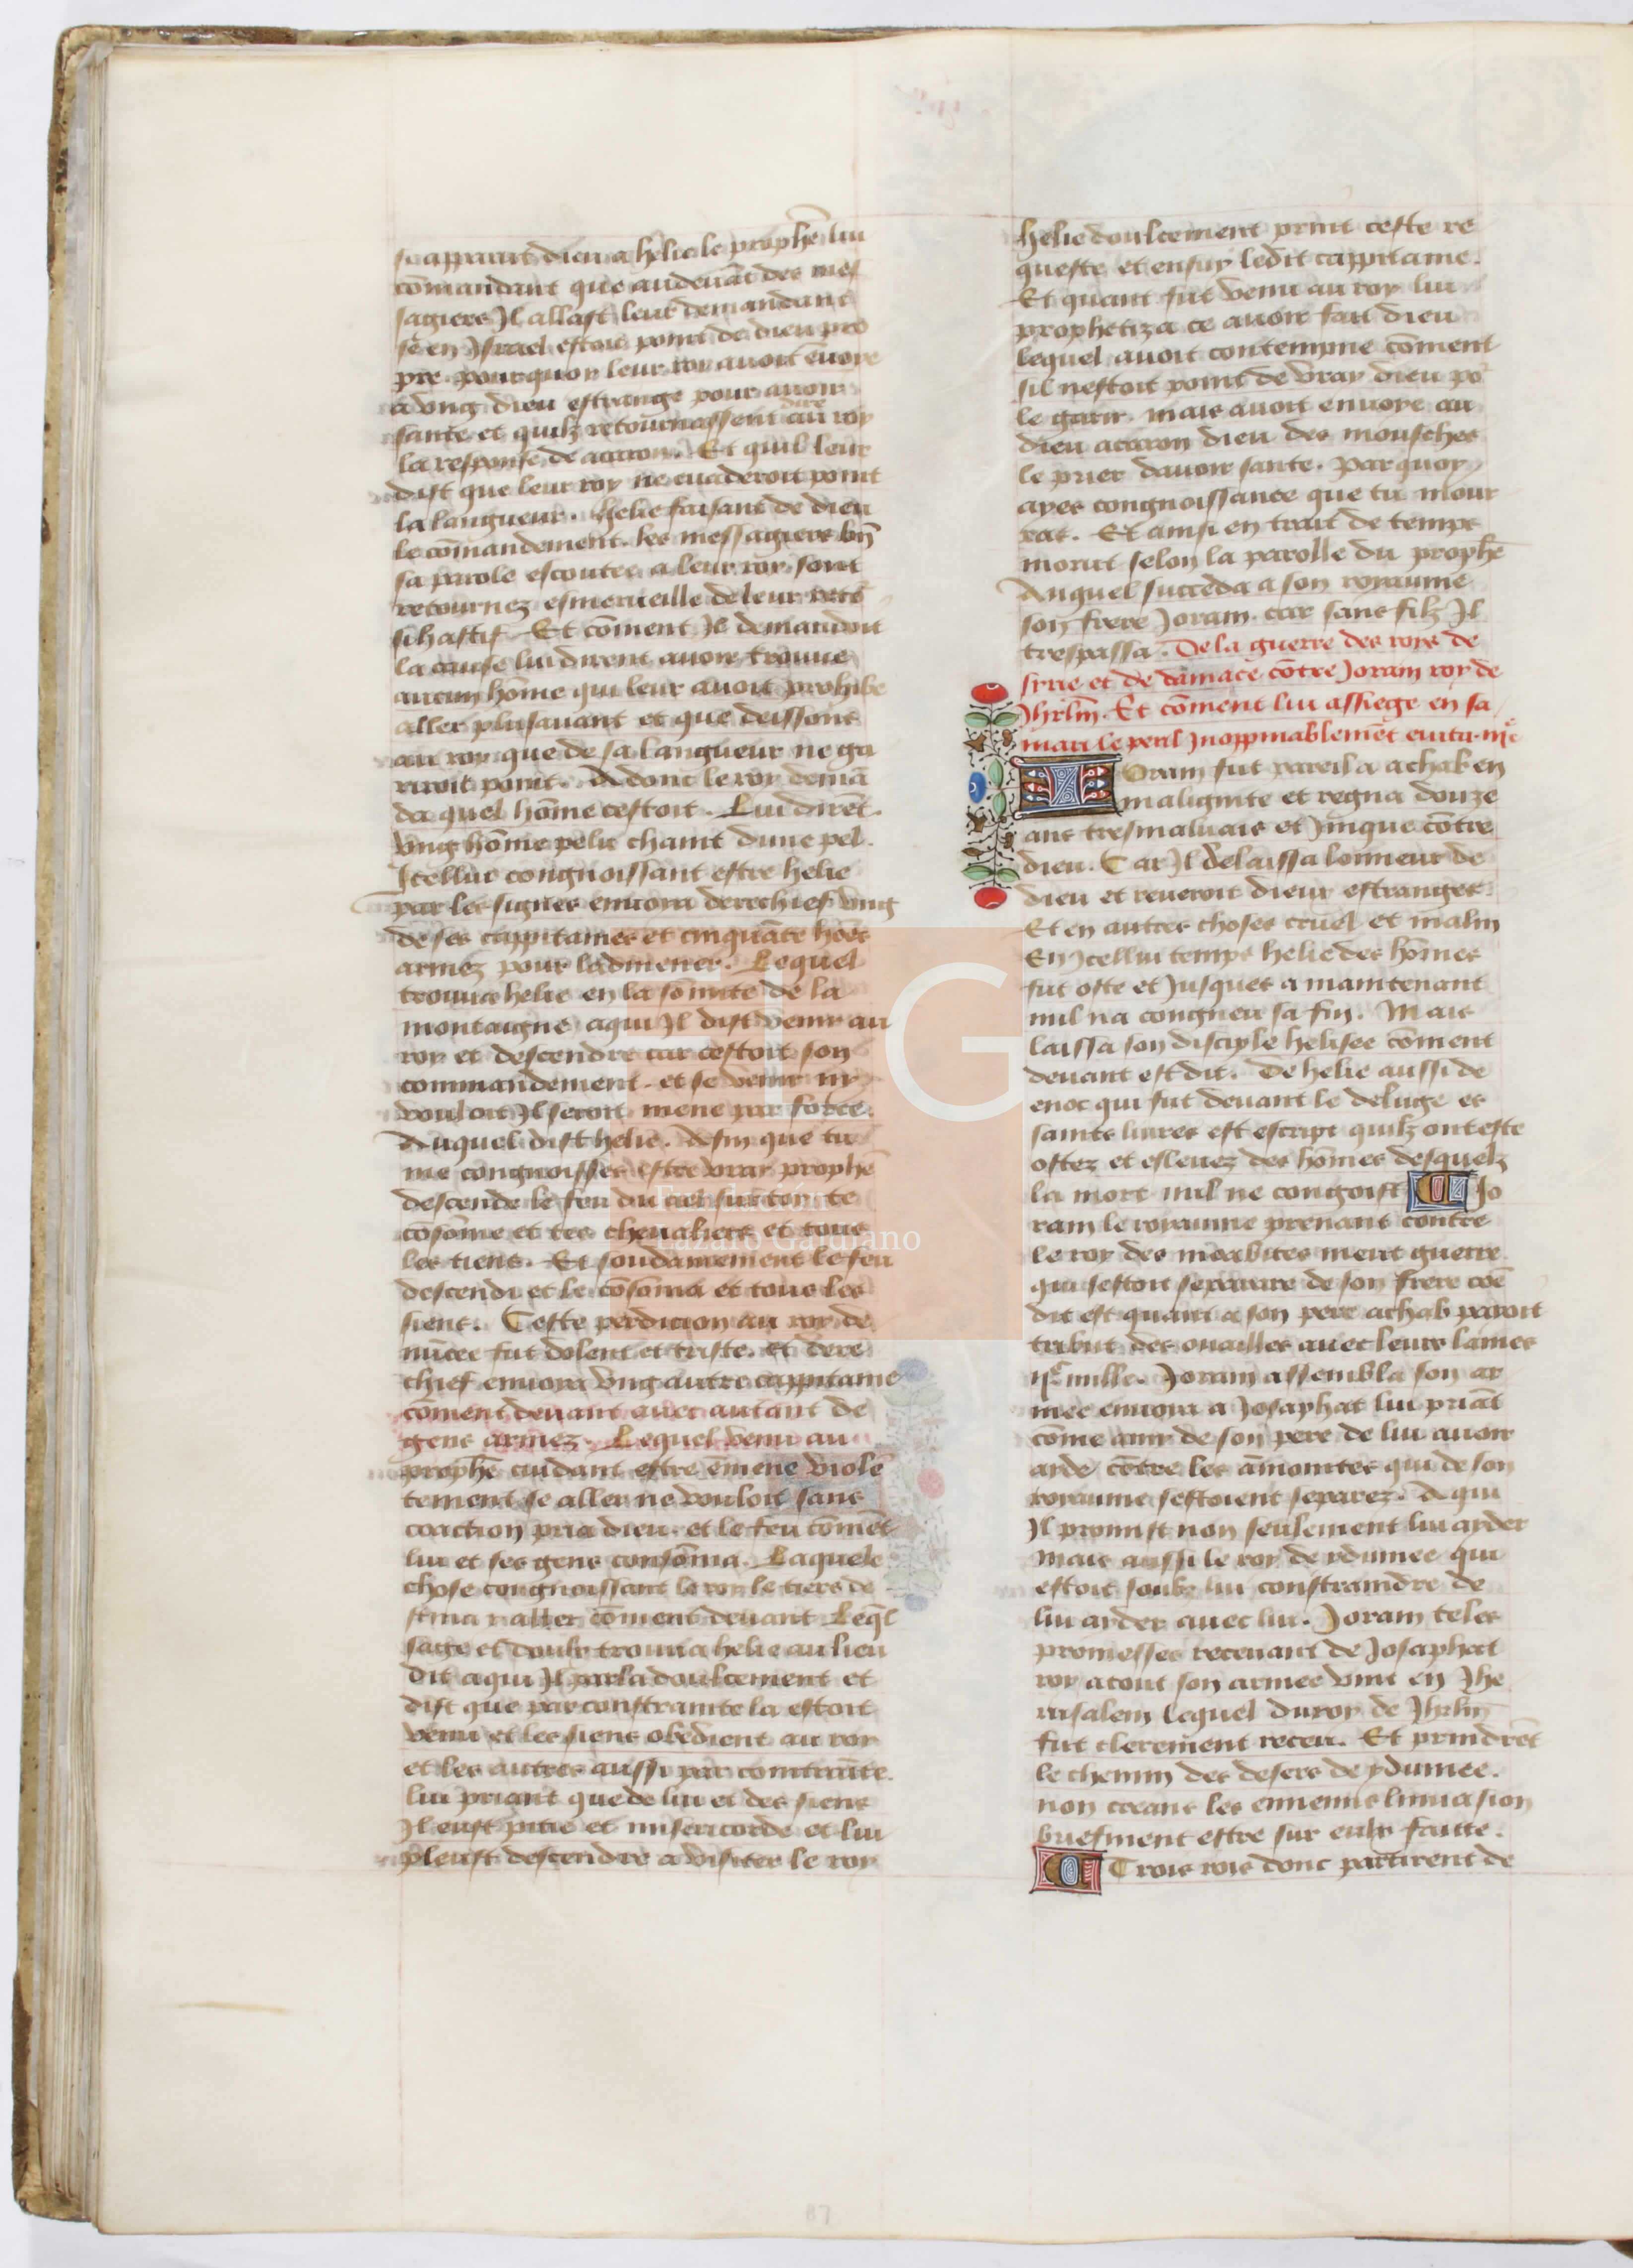 su apparut dieu a helie le prophē lui
cōmandant que audeuāt des mes
sagiers Jl allast leur demandant
se en Jsrael estoit point de dieu pro
pre. pourquoy leur roy auoit enuoye
a vng dieu estrange pour auoir
sante et quilz retournassent dire au roy
la response de accaron. Et quil leur
dist que leur roy ne euaderoit point
la langueur. helie faisant de dieu
le cōmandement. les messagiers
sa parole escoutee a leur roy sont
retournez esmerueille de leur
si hastif. Et cōment Jl demandoit
la cause lui dirent auoir trouue
aucun hōme qui leur auoit prohibe
aller plusauant et que deissons
au roy que de sa langueur ne ga
riroit point. Adonc le roy demā
da quel hōme cestoit. Lui dirēt.
vng hōme pelu chaint dune pel.
Jcellui congnoissant estre helie
par les signes enuoia derechief vng
de ses cappitaines et cinquāte hōēs
armez pour ladmener. Lequel
trouua helie en la sōmite de la
montaigne a qui Jl dist venir au
roy et descendre car cestoit son
commandement. et se venir ny
vouloit Jl seroit mene par force.
Auquel dist helie. Afin que tu
me congnoisses estre vray prophē
descende le feu du ciel sur toy te
cōsōme et tes cheualiers et tous
les tiens. Et soudainement le feu
descendi et le cōsoma et tous les
siens. Ceste perdicion au roy de
nūcee fut dolent et triste. et dere
chief enuoya vng autre cappitaine
cōment deuant auec autant de
gens armez. Lequel venu au
prophē cuidant estre ēmene viole
tement se aller ne vouloit sans
coaction pria dieu. et le feu cōmēt
lui et ses gens consōma. Laquele
chose congnoissant le roy le tiers de
stina y aller cōment deuant Leq̄l
sage et doulx trouua helie au lieu
dit a qui Jl parla doulcement et
dist que par constrainte la estoit
venu et les siens obedient au roy
et les autres aussi par contrainte.
lui priant que de lui et des siens
Jl eust pitie et misericorde et lui
pleust descendre a visiter le roy
helie doulcement print ceste re
queste et ensuy ledit cappitaine.
Et quant fut venu au roy lui
prophetiza ce auoir fait dieu
lequel auoit contempne cōment
sil nestoit point de vray dieu po
le garir. mais auoit enuoye au
dieu accaron dieu des mousches
le prier dauoir sante. Par quoy
ayes congnoissance que tu mour
ras. Et ainsi en trait de temps
morut selon la parolle du prophē
Auquel succeda a son royaume
son frere Joram. car sans filz Jl
trespassa. De la guerre des roys de
sirie et de damace cōtre Joram roy de
Jhrlm̄. Et cōment lui assiege en sa
marie le peril Jnoppinablemēt euita.
Joram fut pareil a achab en
malignite et regna douze
ans tresmaluais et Jnique cōtre
dieu. Car Jl delaissa lonneur de
dieu et reueroit dieux estranges.
Et en autres choses cruel et malin
En Jcellui temps helie des hōmes
fut oste et Jusques a maintenant
nul na congneu sa fin. Mais
laissa son disciple helisee cōment
deuant est dit. De helie aussi de
enoc qui fut deuant le deluge es
saints liures est escript quilz ont este
ostez et esleuez des hōmes desquelz
la mort nul ne congoist Jo
ram le royaume prenant contre
le roy des moabites meut guerre
qui sestoit separare de son frere cōē
dit est quant a son pere achab paioit
tribut des ouailles auec leurs laines
mille. Joram assembla son ar
mee enuoya a Josaphat lui priāt
cōme amy de son pere de lui auoir
aide cōtre les āmonites qui de son
royaume sestoient separez. A qui
Jl promist non seulement lui ayder
Mais aussi le roy de ydumee qui
estoit soubz lui constraindre de
lui ayder auec lui. Joram teles
promesses receuant de Josaphat
roy atout son armee vint en Jhe
rusalem lequel du roy de Jhrlm̄
fut clerement receu. Et prindrēt
le chemin des desers de ydumee.
non creans les ennemis linuasion
briefment estre sur eulx faitte.
Trois rois donc partirent de
87
LG
Lázaro Galdiano